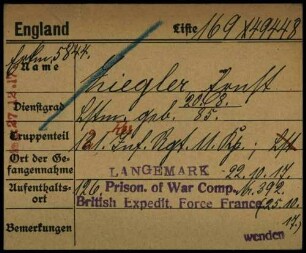 England Liste 169 X 49448
5844.
Name Kriegler Ernst
Dienstgrad Lstm. geb. 20.8.
85.
Truppenteil Inf. Rgt. 11. Kp.
Ort der Ge-
fangennahme LANGEMARK 22.10.17.
Aufenthalts-
ort 126. Prison. of War Comp. No. 392.
British Expedit. Force France (25.10.
17.)
Bemerkungen wenden